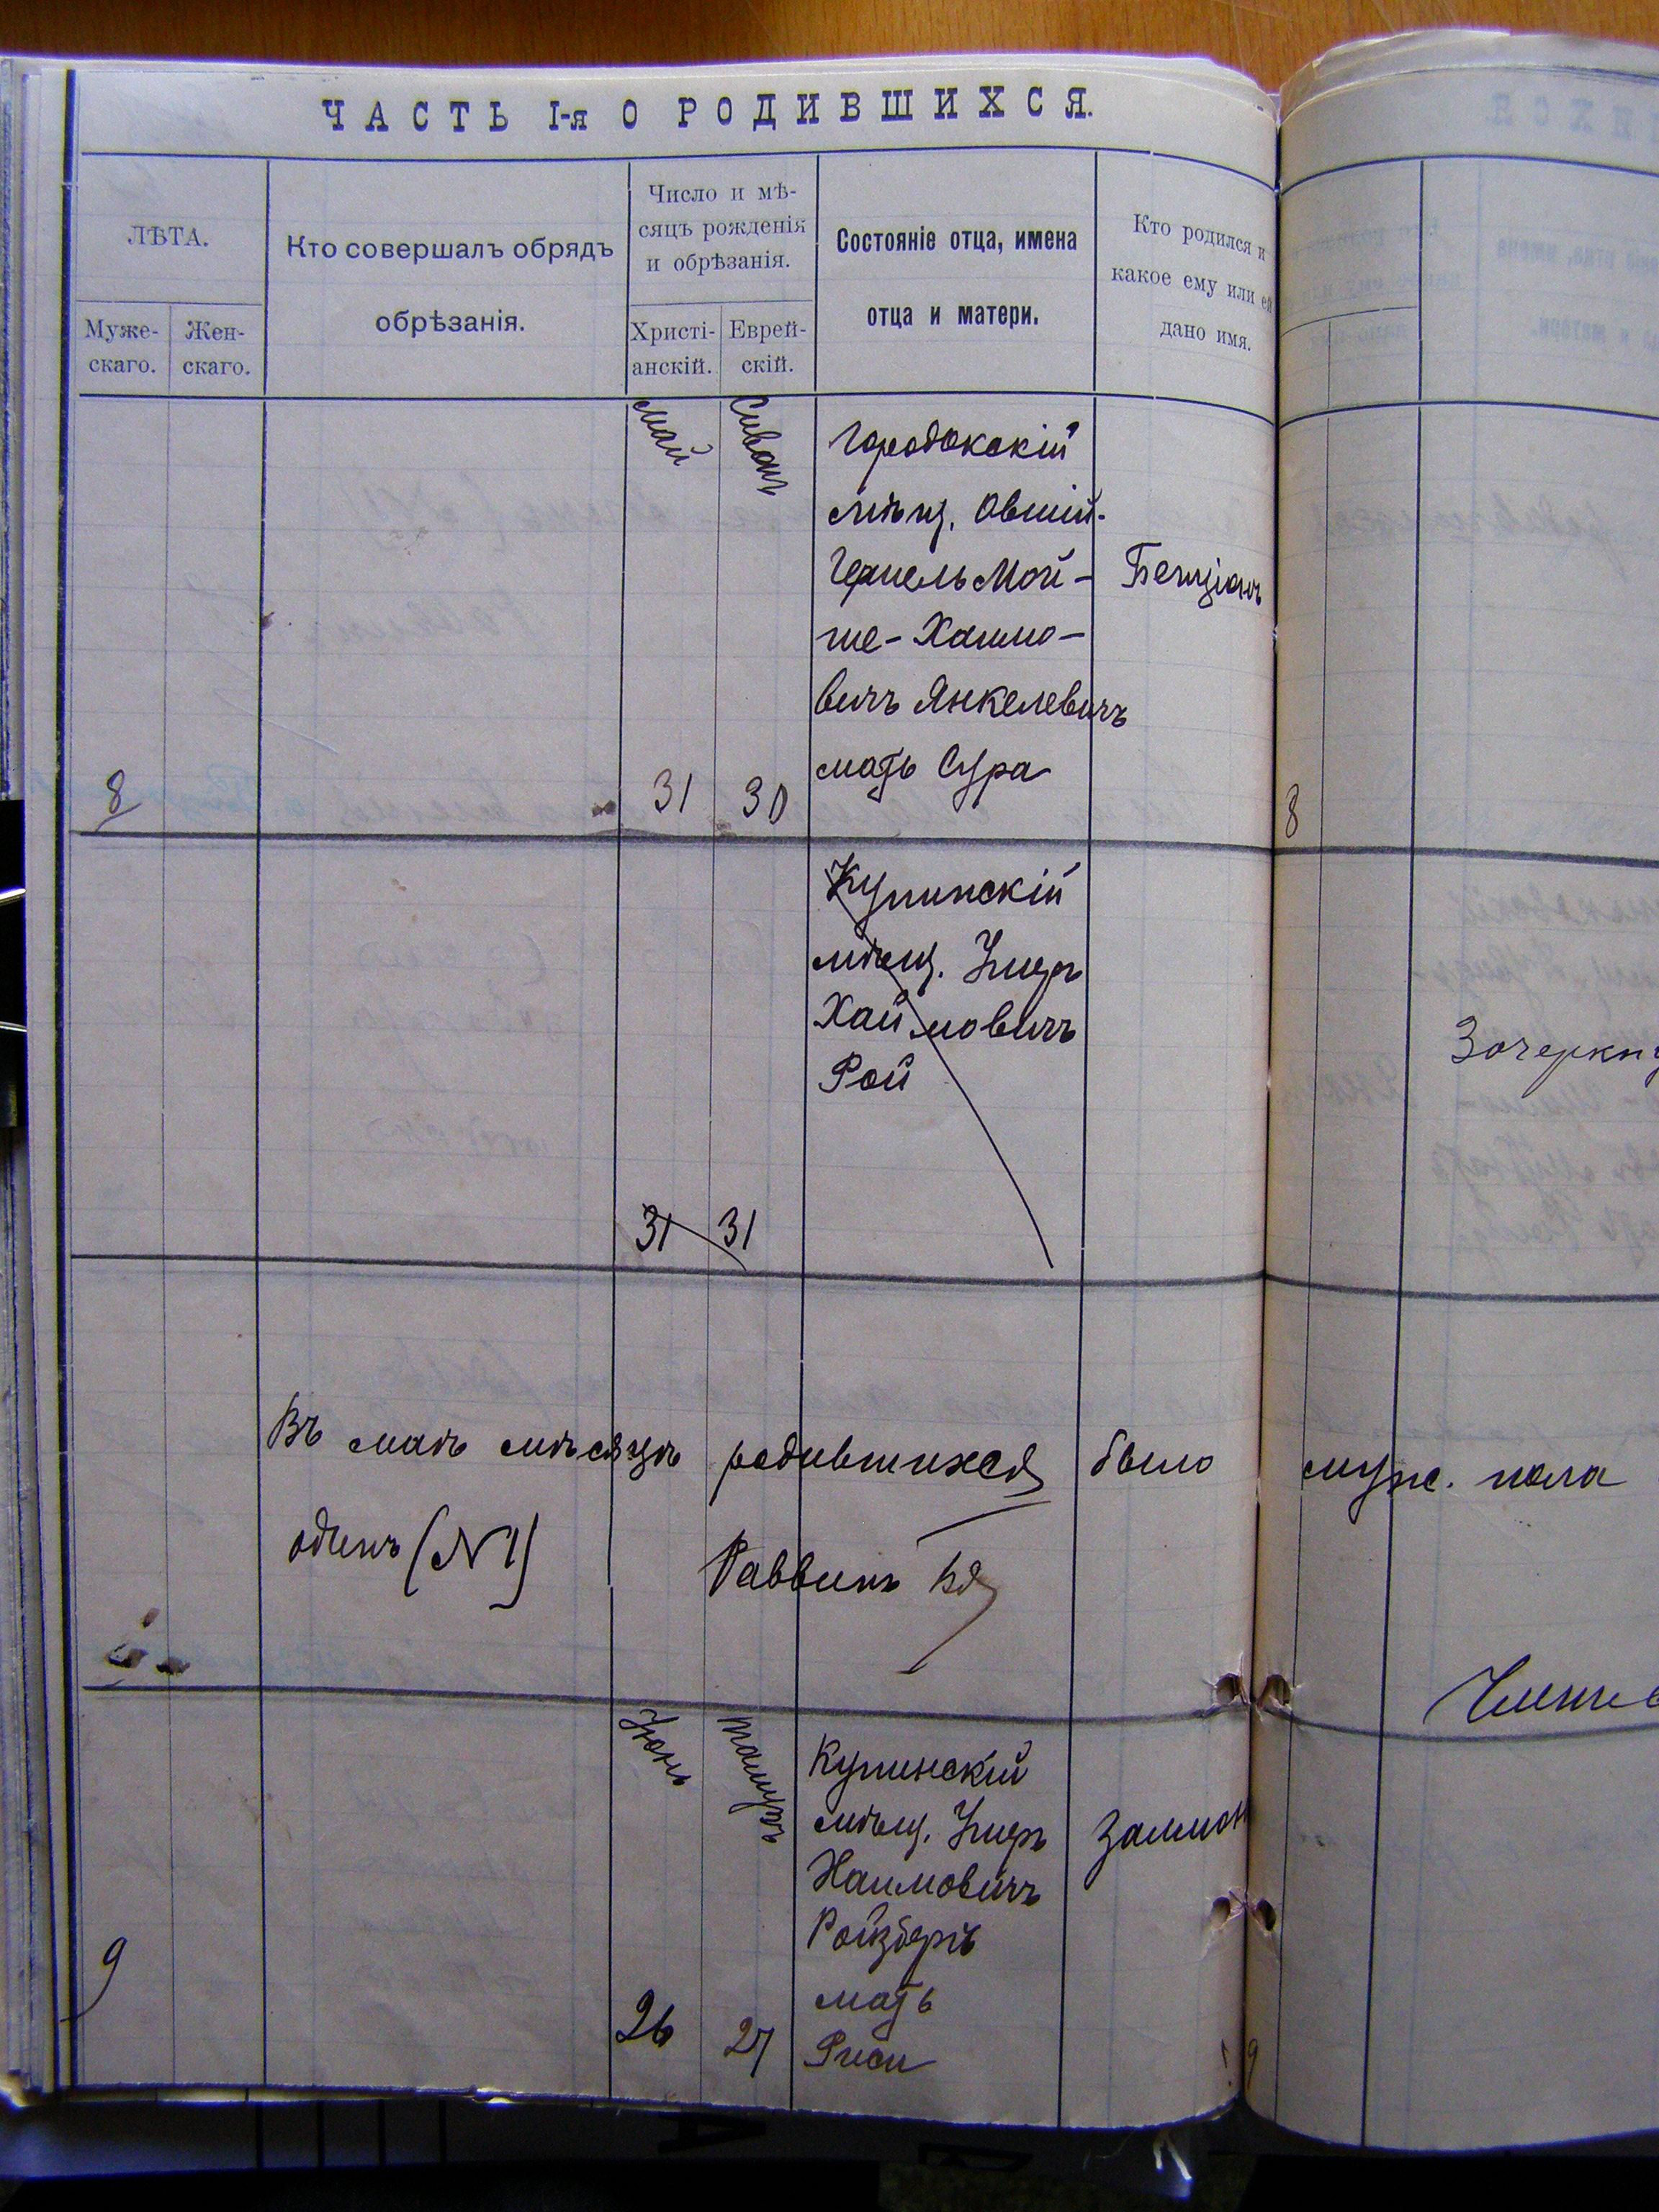 ЧАСТЬ I-я О РОДИВШИХСЯ.
ЛѢТА.
Муже-
скаго.
Жен-
скаго.
Кто совершалъ обрядъ
обрѣзанія.
Число и мѣ-
сяцъ рожденія
и обрѣзанія.
Христі-
анскій.
Еврей-
скій.
Состояніе отца, имена
отца и матери.
Кто родился и
какое ему или ей
дано имя.
Май
Сивонъ
Городокскій
мѣщ. Овшій-
Гершель Мой-
ше-Хаимо-
вичъ Янкелевичъ
мать Сура
Бенціанъ
8
31
30
8
Купинскій
мѣщ. Умеръ
Хаймовичъ
Рой
31
31
Зачеркну
Въ маѣ мѣсяцѣ родившихся было муж. пола
одинъ (№1)
Раввинъ
Іюнь
Тамузъ
Купинскій
мѣщ.
Хаимовичъ
Ройзбергъ
мать
Залмон
9
26
27
9